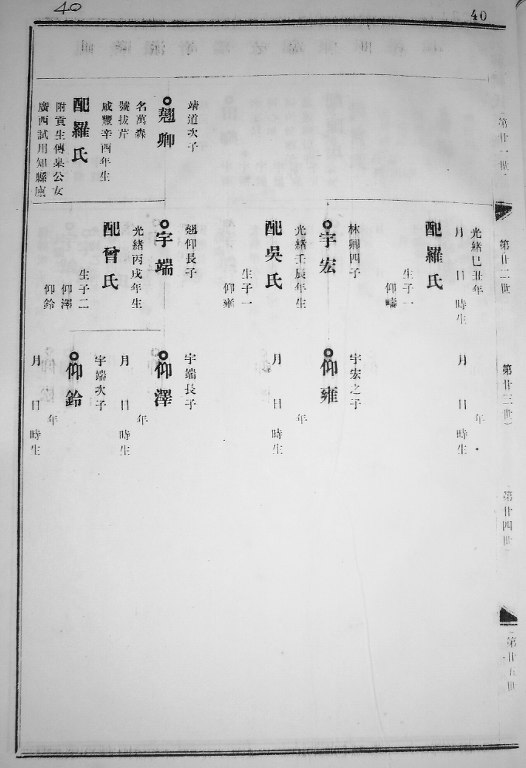 40
40
第廿一世
第廿二世
第廿三世
第廿四世
第廿五世
靖道次子
翹卿
名萬森
號拔芹
咸豐辛酉年生
配羅氏
附貢生傳杲公女
廣西試用知縣
光緒己丑年
月 日 時生
配羅氏
生子一
仰疇
林卿四子
宇宏
光緒壬辰年生
配吳氏
生子一
仰雍
翹仰長子
宇端
光緒丙戌年生
配曾氏
生子二
仰澤
仰鈴
年
月 日 時生
宇宏之子
仰雍
年
月 日 時生
宇端長子
仰澤
年
月 日 時生
宇端次子
仰鈴
年
月 日 時生